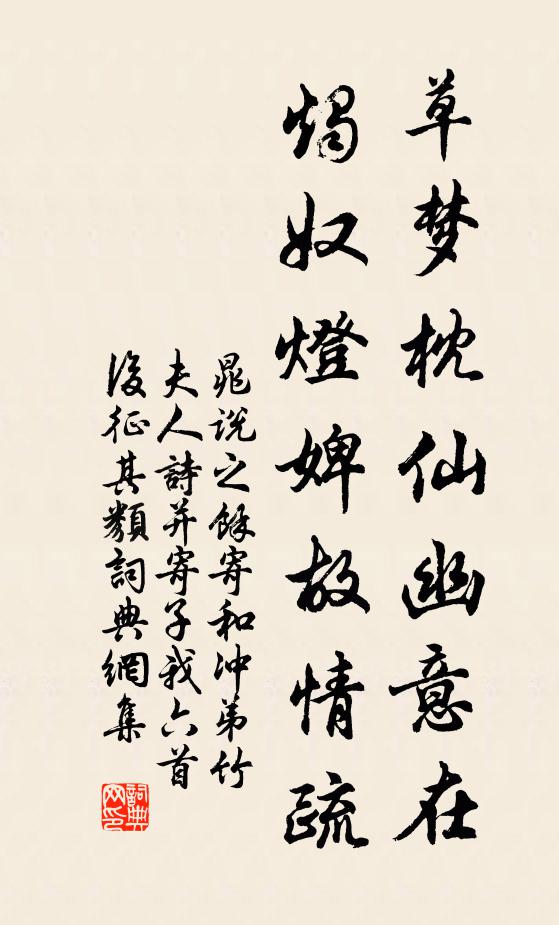 草梦枕仙幽意在
燭奴燈婢故情疏
晁说之餘寄和冲弟竹
夫人詩并寄子我六首
後征其類詞典網集
詞典网印